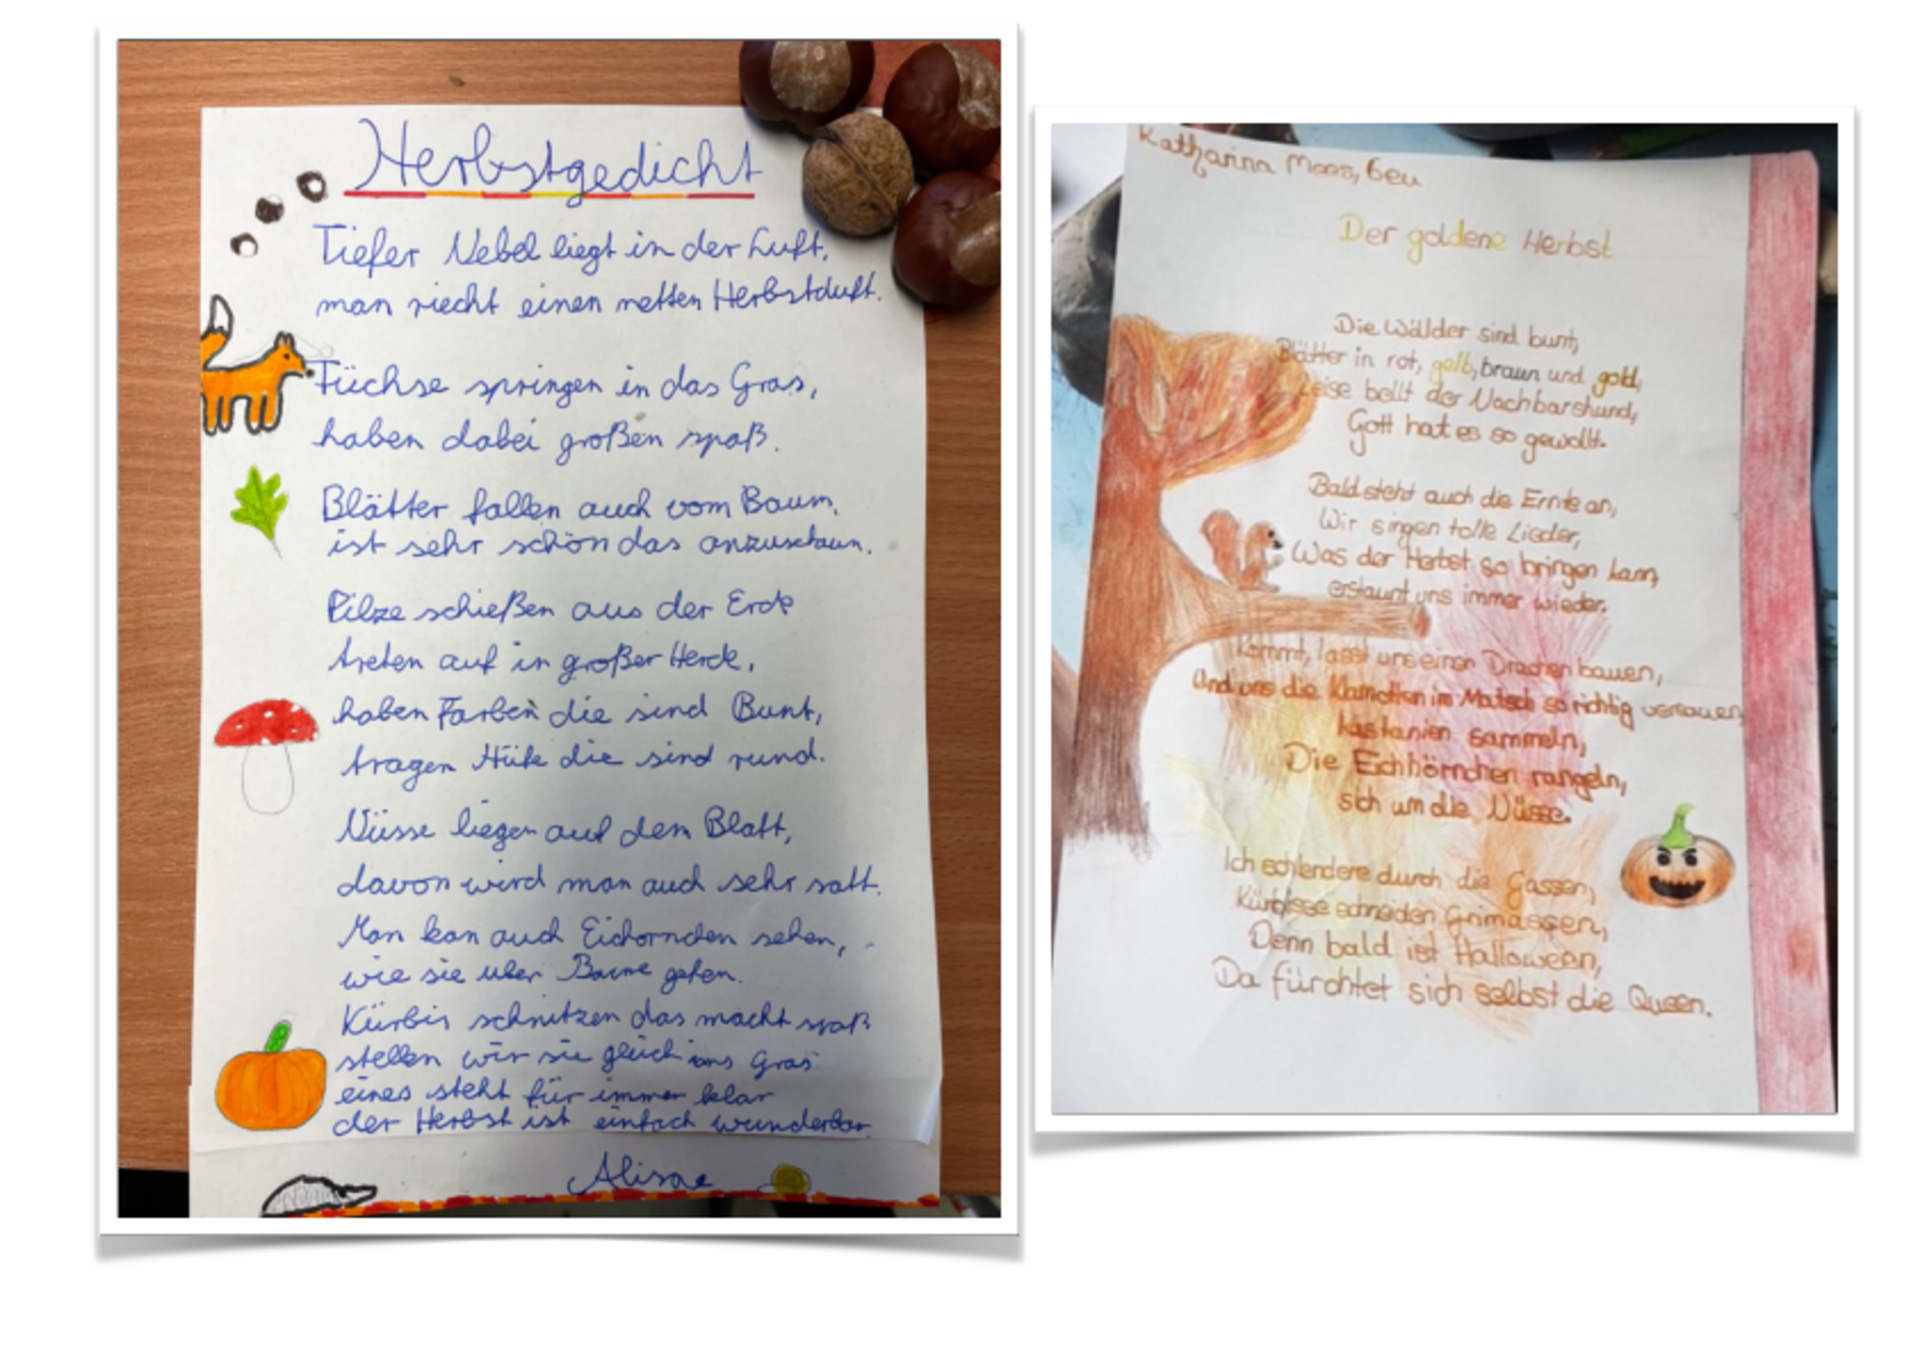 Herbstgedicht
Tiefer Nebel liegt in der Luft,
man riecht einen netten Herbstduft.
Füchse springen in das Gras,
haben dabei großen spaß.
Blätter fallen auch vom Baum,
ist sehr schön das anzuschaun.
Pilze schießen aus der Erde
treten auf in großer Herde,
haben Farben die sind Bunt,
tragen Hüte die sind rund.
Nüsse liegen auf dem Blatt,
davon wird man auch sehr satt.
Man kan auch Eichornchen sehen,
wie sie uber Bäume gehen.
Kürbis schnitzen das macht spaß
stellen wir sie gleich ins Gras
eines steht für immer klar
der Herbst ist einfach wunderbar.
Katharina Moos, 6eu
Der goldene Herbst
Die Wälder sind bunt,
Blätter in rot, gelb, braun und gold,
Leise bellt der Nachbarshund,
Gott hat es so gewollt.
Bald steht auch die Ernte an,
Wir singen tolle Lieder,
Was der Herbst so bringen kann,
erstaunt uns immer wieder.
Kommt, lasst uns einen Drachen bauen,
Und uns die Klamotten im Matsch so richtig versauen,
Kastanien sammeln,
Die Eichhörnchen rangeln,
sich um die Nüsse.
Ich schlendere durch die Gassen,
Kürbisse schneiden Grimassen,
Denn bald ist Halloween,
Da fürchtet sich selbst die Queen.